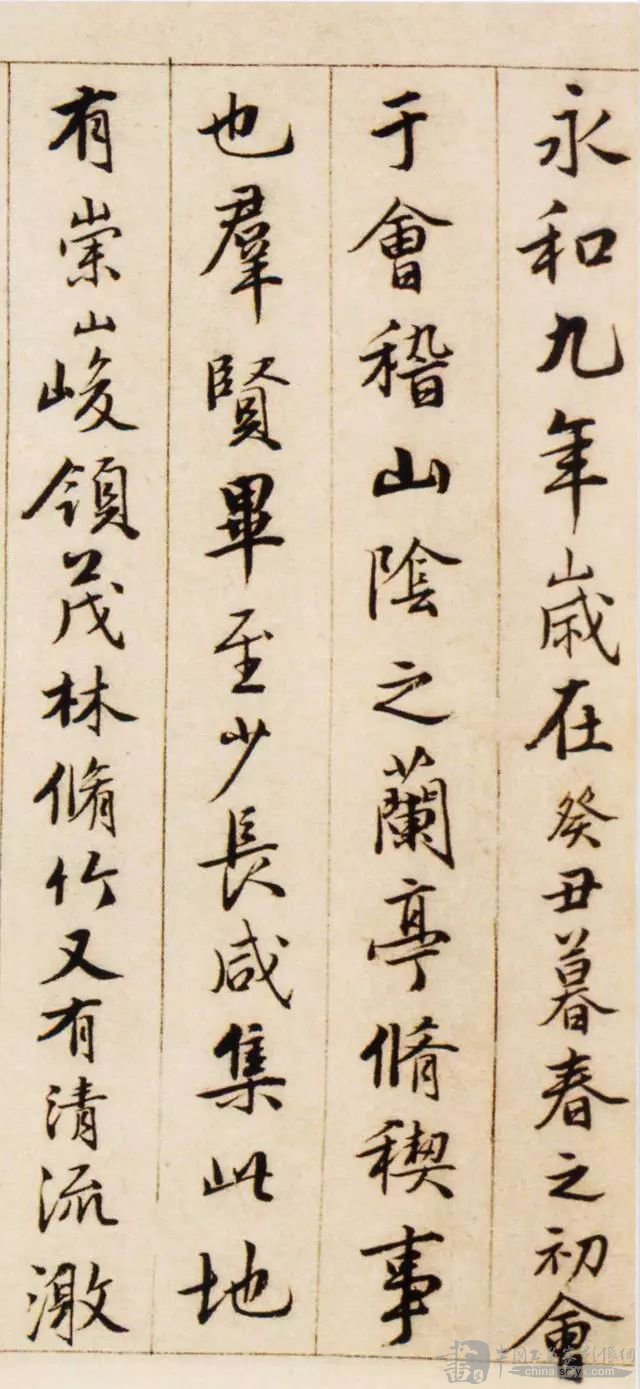 永和九年歲在癸丑暮春之初會
于會稽山陰之蘭亭脩稧事
也羣賢畢至少長咸集此地
有崇山峻領茂林脩竹又有清流激
china-shyx.com